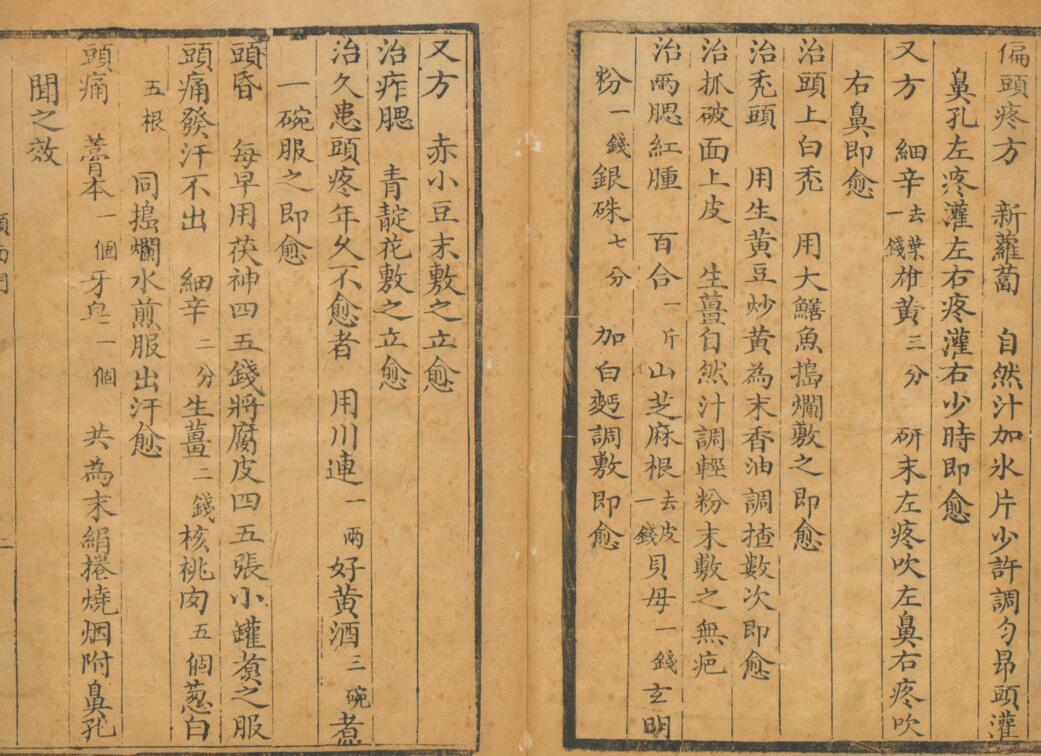 偏頭疼方 新蘿蔔 自然汁加氷片少許調勻昂頭灌
鼻孔左疼灌左右疼灌右少時即愈
又方 細辛去葉一錢雄黃三分 研末左疼吹左鼻右疼吹
右鼻即愈
治頭上白禿 用大鱔魚搗爛敷之即愈
治禿頭 用生黃豆炒黃為末香油調揸數次即愈
治抓破面上皮 生薑自然汁調輕粉末敷之無疤
治兩腮紅腫 百合一斤山芝麻根去皮一錢貝母一錢玄明
粉一錢銀硃七分 加白麪調敷即愈
又方 赤小豆末敷之立愈
治痄腮 青靛花敷之立愈
治久患頭疼年久不愈者 用川連一兩好黃酒三碗煮
一碗服之即愈
頭昏 每早用茯神四五錢將腐皮四五張小罐煑之服
頭痛發汗不出 細辛二分生薑二錢核桃肉五個葱白
五根 同搗爛水煎服出汗愈
頭痛 藁本一個牙皂一個 共為末絹捲燒烟附鼻孔
聞之效